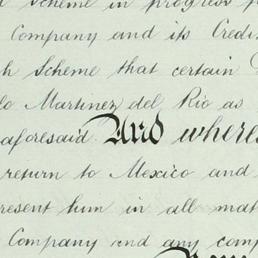 Scheme in progress
Company and its Credi
h Scheme that certain
lo Martinez del Rio as
aforesaid. And where
return to Mexico and
resent him in all mat
Company and any comp